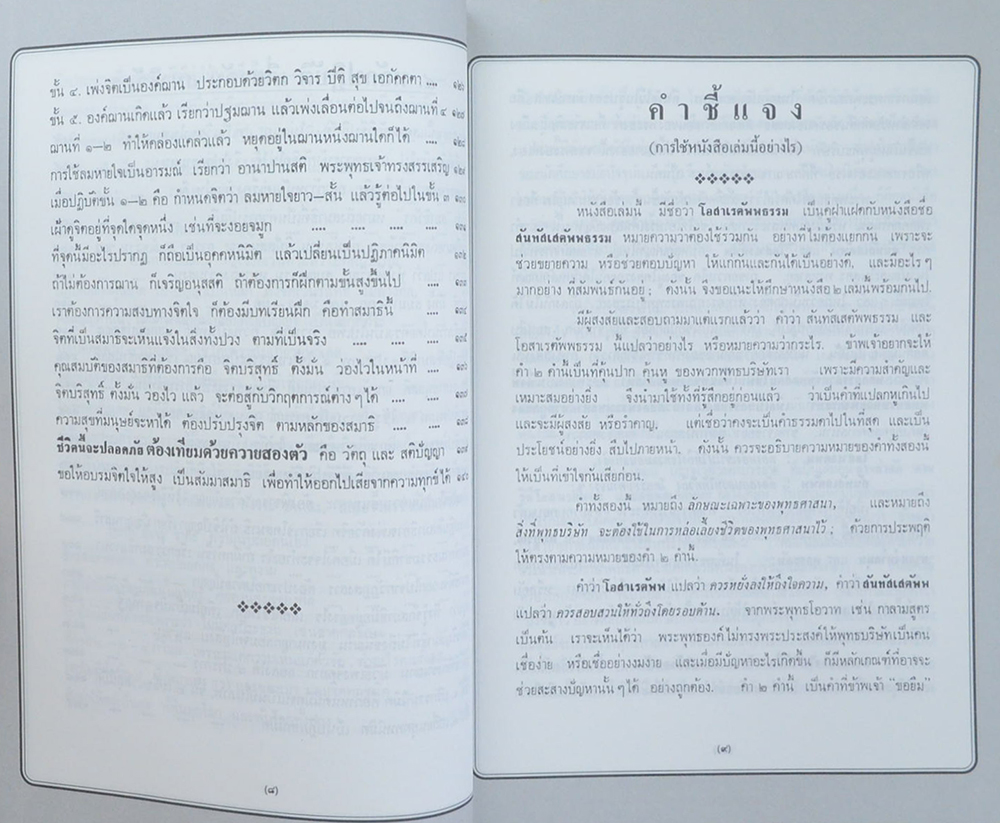 ขั้น ๔. เพ่งจิตเป็นองค์ฌาน ประกอบด้วยวิตก วิจาร ปีติ สุข เอกัคคตา .... ๑๒๖
ขั้น ๕. องค์ฌานเกิดแล้ว เรียกว่าปฐมฌาน แล้วเพ่งเลื่อนต่อไปจนถึงฌานที่ ๔
ฌานที่ ๑—๒ ทำให้คล่องแคล่วแล้ว หยุดอยู่ในฌานหนึ่งฌานใดก็ได้ ....
การใช้ลมหายใจเป็นอารมณ์ เรียกว่า อานาปานสติ พระพุทธเจ้าทรงสรรเสริญ ๑๒๙
เมื่อปฏิบัติขั้น ๑—๒ คือ กำหนดจิตว่า ลมหายใจยาว—สั้น แล้วรู้ต่อไปในขั้น ๓ ๑๓๐
เฝ้าดูจิตอยู่ที่จุดใดจุดหนึ่ง เช่นที่จะงอยจมูก .... .... .... .... ๑๓๑
ที่จุดนี้มีอะไรปรากฏ ก็ถือเป็นอุคคหนิมิต แล้วเปลี่ยนเป็นปฏิภาคนิมิต ๑๓๒
ถ้าไม่ต้องการฌาน ก็เจริญอนุสสติ ถ้าต้องการก็ฝึกตามขั้นสูงขึ้นไป .... ๑๓๓
เราต้องการความสงบทางจิตใจ ก็ต้องมีบทเรียนฝึก คือทำสมาธินี้ .... ๑๓๔
จิตที่เป็นสมาธิจะเห็นแจ้งในสิ่งทั้งปวง ตามที่เป็นจริง .... .... ....
คุณสมบัติของสมาธิที่ต้องการคือ จิตบริสุทธิ์ ตั้งมั่น ว่องไวในหน้าที่ .... ๑๓๖
จิตบริสุทธิ์ ตั้งมั่น ว่องไว แล้ว จะต่อสู้กับวิกฤตการณ์ต่าง ๆ ได้ .... .... ๑๓๗
ความสุขที่มนุษย์จะหาได้ ต้องปรับปรุงจิต ตามหลักของสมาธิ .... .... ๑๓๘
ชีวิตนี้จะปลอดภัย ต้องเทียมด้วยควายสองตัว คือ วัตถุ และ สติปัญญา ๑๓๙
ขอให้อบรมจิตใจให้สูง เป็นสัมมาสมาธิ เพื่อทำให้ออกไปเสียจากความทุกข์ได้
(๘)
คำชี้แจง
(การใช้หนังสือเล่มนี้อย่างไร)
หนังสือเล่มนี้ มีชื่อว่า โอสาเรตัพพธรรม เป็นคู่ฝาแฝดกับหนังสือชื่อ
สันทัสเสตัพพธรรม หมายความว่าต้องใช้ร่วมกัน อย่างที่ไม่ต้องแยกกัน เพราะจะ
ช่วยขยายความ หรือช่วยตอบปัญหา ให้แก่กันและกันได้เป็นอย่างดี. และมีอะไร ๆ
มากอย่าง ที่สัมพันธ์กันอยู่ ; ดังนั้น จึงขอแนะให้ศึกษาหนังสือ ๒ เล่มนี้พร้อมกันไป.
มีผู้สงสัยและสอบถามมาแต่แรกแล้วว่า คำว่า สันทัสเสตัพพธรรม และ
โอสาเรตัพพธรรม นี้แปลว่าอย่างไร หรือหมายความว่ากระไร. ข้าพเจ้าอยากจะให้
คำ ๒ คำนี้เป็นที่คุ้นปาก คุ้นหู ของพวกพุทธบริษัทเรา เพราะมีความสำคัญและ
เหมาะสมอย่างยิ่ง จึงนำมาใช้ทั้งที่รู้สึกอยู่ก่อนแล้ว ว่าเป็นคำที่แปลกหูเกินไป
และจะมีผู้สงสัย หรือรำคาญ. แต่เชื่อว่าคงจะเป็นคำธรรมดาไปในที่สุด และเป็น
ประโยชน์อย่างยิ่ง สืบไปภายหน้า. ดังนั้น ควรจะอธิบายความหมายของคำทั้งสองนี้
ให้เป็นที่เข้าใจกันเสียก่อน.
คำทั้งสองนี้ หมายถึง ลักษณะเฉพาะของพุทธศาสนา, และหมายถึง
สิ่งที่พุทธบริษัท จะต้องใช้ในการหล่อเลี้ยงชีวิตของพุทธศาสนาไว้ ; ด้วยการประพฤติ
ให้ตรงตามความหมายของคำ ๒ คำนี้.
คำว่า โอสาเรตัพพ แปลว่า ควรหยั่งลงให้ถึงใจความ, คำว่า สันทัสเสตัพพ
แปลว่า ควรสอบสวนให้ทั่วถึงโดยรอบด้าน. จากพระพุทธโอวาท เช่น กาลามสูตร
เป็นต้น เราจะเห็นได้ว่า พระพุทธองค์ไม่ทรงพระประสงค์ให้พุทธบริษัทเป็นคน
เชื่อง่าย หรือเชื่ออย่างงมงาย และเมื่อมีปัญหาอะไรเกิดขึ้น ก็มีหลักเกณฑ์ที่อาจจะ
ช่วยสะสางปัญหานั้น ๆ ได้ อย่างถูกต้อง. คำ ๒ คำนี้ เป็นคำที่ข้าพเจ้า “ขอยืม”
(๙)